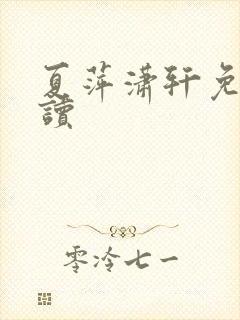 夏萍潇轩免
讀
零泠七一